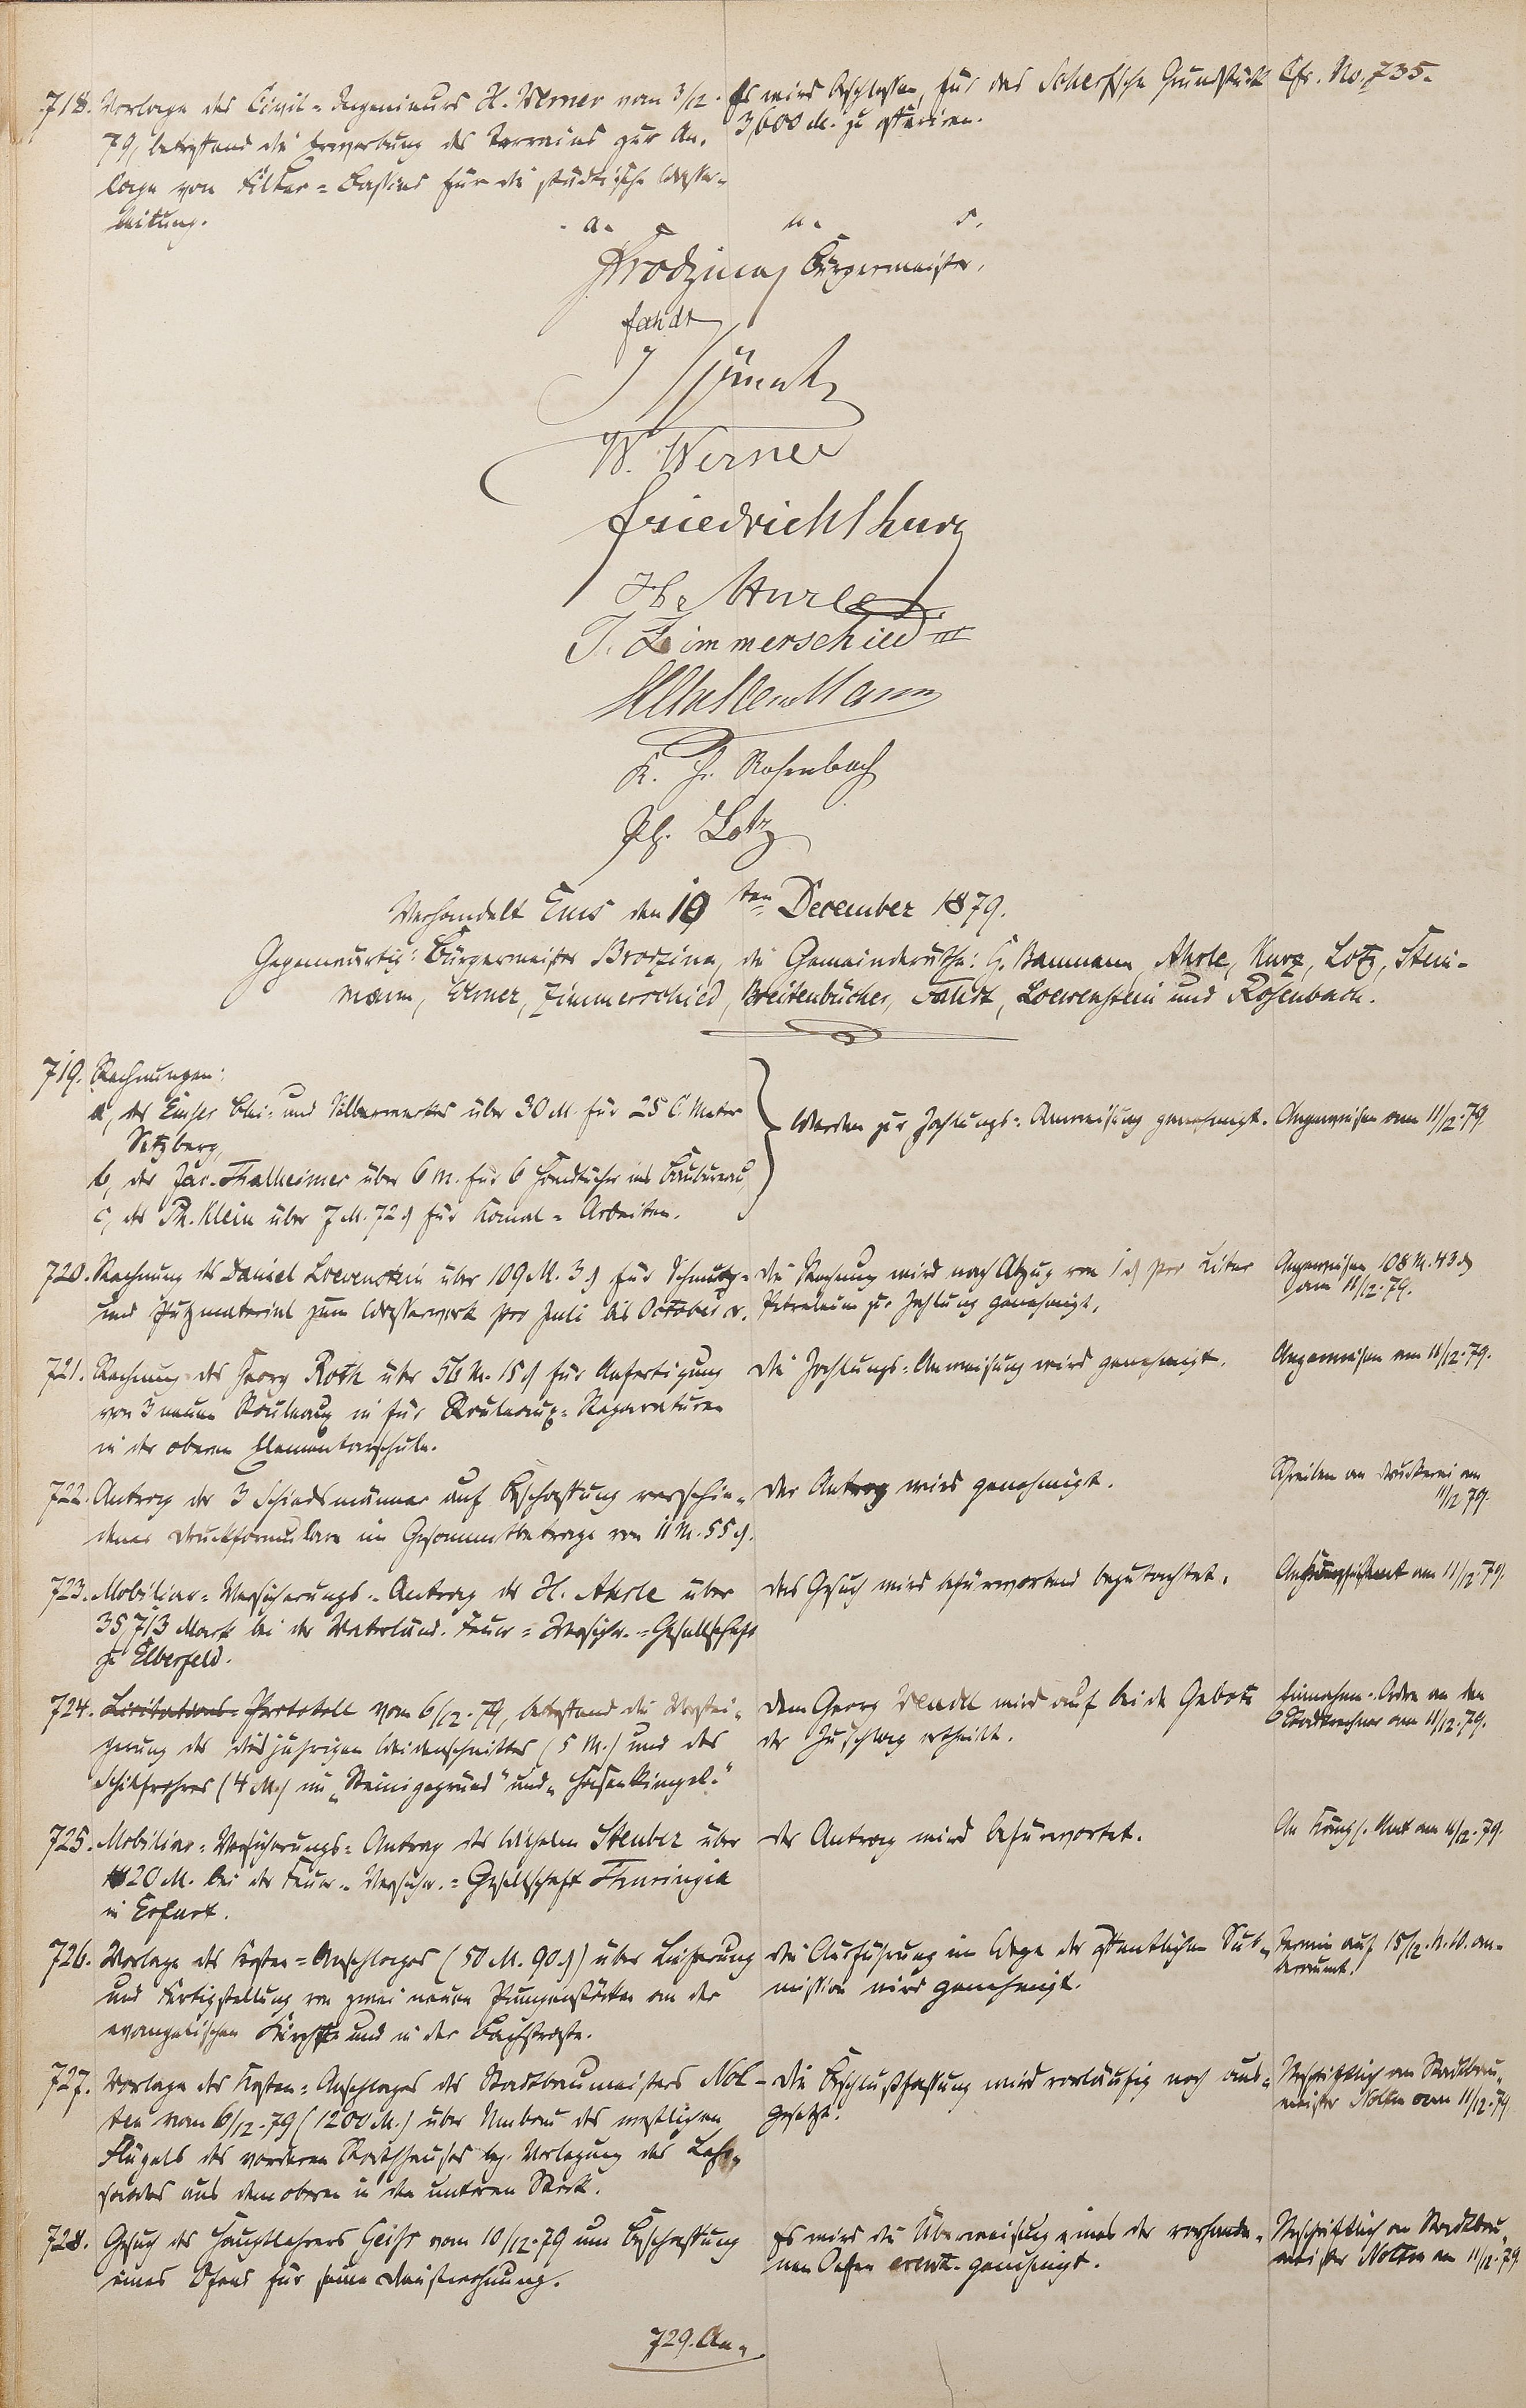 718. Vorlage des Civil-Ingenieurs H. Werner vom 3/12.
79, betreffend die Erwerbung des Terrains zur An-
lage von Filter-Bassins für die städtische Wasser-
leitung.
Es wird beschlossen, für das Scherf'sche Grundstück
3,600 M. zu offeriren.
Cfr. No. 735.
a. u. s.
Brodzina, Bürgermeister.
Fahdt
W. Werner
Friedrich Kurz
H. Ahrle
J. Zimmerschied III
Rosenbach
Ph. Lotz
Verhandelt Ems den 10ten December 1879.
Gegenwärtig: Bürgermeister Brodzina, die Gemeinderäthe: H. Baumann, Ahrle, Kurz, Lotz, Stein-
mann, Werner, Zimmerschied, Breitenbücher, Fahdt, Loewenstein und Rosenbach.
719. Rechnungen:
a, des Emser Blei- und Silberwerkes über 30 M. für 25 C. Meter
Setzberg,
b, des Jac. Thalheimer über 6 M. für 6 Handtücher ins Baubureau,
c, des Ph. Klein über 7 M. 72 ₰ für Kanal-Arbeiten.
Werden zur Zahlungs-Anweisung genehmigt.
Angewiesen am 11/12.79.
720. Rechnung des Daniel Loewenstein über 109 M. 3 ₰ für Schmutz-
und Putzmaterial zum Wasserwerk pro Juli bis October cr.
Die Rechnung wird nach Abzug von 1 ₰ pro Liter
Petroleum zur Zahlung genehmigt.
Angewiesen 108 M. 43 ₰
am 11/12.79.
721. Rechnung des Georg Roth über 56 M. 15 ₰ für Anfertigung
von 3 neuen Rouleaux u. für Rouleaux-Reparaturen
in der oberen Elementarschule.
Die Zahlungs-Anweisung wird genehmigt.
Angewiesen am 11/12.79.
722. Antrag der 3 Schiedsmänner auf Beschaffung verschie-
dener Druckformulare im Gesammtbetrage von 11 M. 55 ₰.
Der Antrag wird genehmigt.
Schreiben an Druckerei am
11/12 79.
723. Mobiliar-Versicherungs-Antrag des H. Ahrle über
35,713 Mark bei der Vaterländ. Feuer-Versicher.-Gesellschaft
zu Elberfeld.
Das Gesuch wird befürwortend begutachtet.
An Königs. Amt am 11/12.79.
724. Licitations-Protokoll vom 6/12.79, betreffend die Verstei-
gerung des diesjährigen Weidenschnittes (5 M.) und des
Schilfrohres (4 M.) im „Steinigegrund" und „Hasenkümpel."
Dem Georg Wendel wird auf beide Gebote
der Zuschlag ertheilt.
Einnahm.-Ordre an den
Stadtrechner am 11/12.79.
725. Mobiliar-Versicherungs-Antrag des Wilhelm Steuber über
20 M. bei der Feuer-Versicher.-Gesellschaft Thuringia
in Erfurt.
Der Antrag wird befürwortet.
An Königs. Amt am 11/12.79.
726. Vorlage des Kosten-Anschlages (50 M. 90 ₰) über Lieferung
und Fertigstellung von zwei neuen Pumpenstöcken an der
evangelischen Kirche und in der Bachstraße.
Die Ausführung im Wege der öffentlichen Sub-
mission wird genehmigt.
Termin auf 15/12. N. M. an-
beraumt.
727. Vorlage des Kosten-Anschlages des Stadtbaumeisters Nol-
ten vom 6/12.79 (1200 M.) über Umbau des westlichen
Flügels des vorderen Rathhauses bez. Verlegung des
aus dem oberen in den unteren Stock.
Die Beschlußfassung wird vorläufig noch aus-
gesetzt.
Abschriftlich an Stadtbau-
meister Nolten am 11/12.79
728. Gesuch des Hauptlehrers Geiß vom 10/12.79 um Beschaffung
eines Ofens für seine Dienstwohnung.
Es wird die Überweisung eines der vorhande-
nen Oefen event. genehmigt.
Abschriftlich an Stadtbau-
meister Nolten am 11/12.79
729. An-